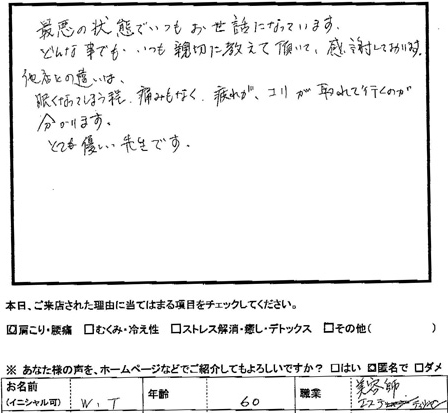 最悪の状態でいつもお世話になっています。
どんな事でも、いつも親切に教えて頂いて、感謝しております。
他店との違いは、
眠くなってしまう程、痛みもなく、疲れが、コリが取れて行くのが
分かります。
とても優しい先生です。
本日、ご来店された理由に当てはまる項目をチェックしてください。
☑肩こり・腰痛 □むくみ・冷え性 □ストレス解消・癒し・デトックス □その他( )
※ あなた様の声を、ホームページなどでご紹介してもよろしいですか？ □はい ☑匿名で □ダメ
お名前 (イニシャル可) W.T 年齢 60 職業 美容師
エステ